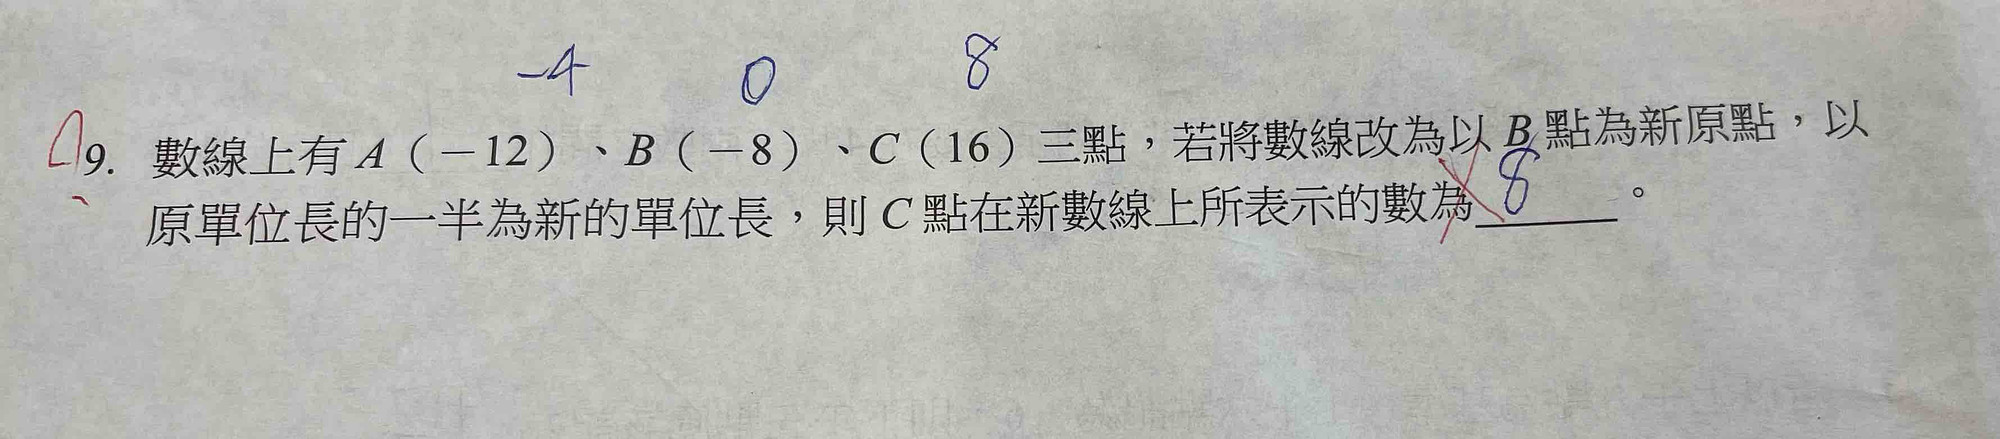 -4 0 8
9. 數線上有 A（－12）、B（－8）、C（16）三點，若將數線改為以 B 點為新原點，以
原單位長的一半為新的單位長，則 C 點在新數線上所表示的數為 8 。